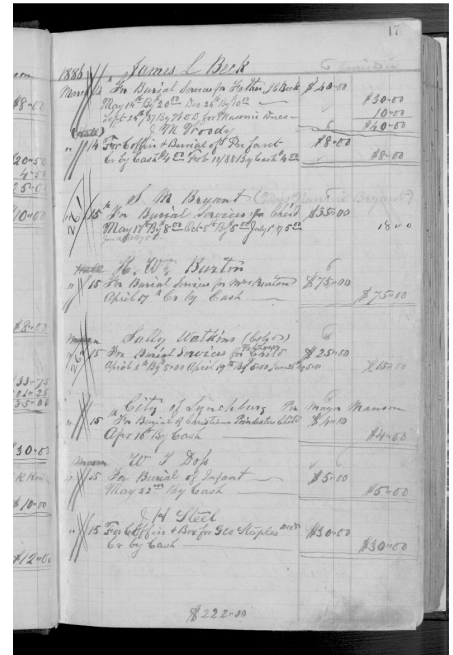 17
1886 James L Beck
March 14 For Burial Services for Father, $40=00
May 14th By 20.00 Dec 24th By 10.00 $30=00
Sept 24 /87 By for Masonic Dues 10=00
J M Woody $40=00
" 14 For Coffin & Burial of Infant $8=00
Cr by Cash $4.00 Feb 14/88 By Cash 4.00 $8=00
S M Bryant
" 15th For Burial Services for Child $35=00
May 17th By 8.00 Oct 8th By 5.00 July 1st 5.00 18=00
H. W. Burton
" 15 For Burial Services for Mrs Burton $75=00
April 17th Cr by Cash $75=00
Sally Watkins (Col=00)
" 15 For Burial Services for Child $25=00
April 5th By 5=00 April 19th By 5=00 $15=00
City of Lynchburg Per Mayor Manson
" 15th For Burial of Christian Child $4=00
Apr 16th By Cash $4=00
W T Doss
" 25 For Burial of Infant $5=00
May 22nd By Cash $5=00
J H Steel
" 15 For Coffin & Box for Geo Staples $30=00
Cr by Cash $30=00
$222=00
$8=00
$20=50
4=50
25=00
$10=00
$8=00
$33=75
35=00
$30=00
$10=00
$12=00